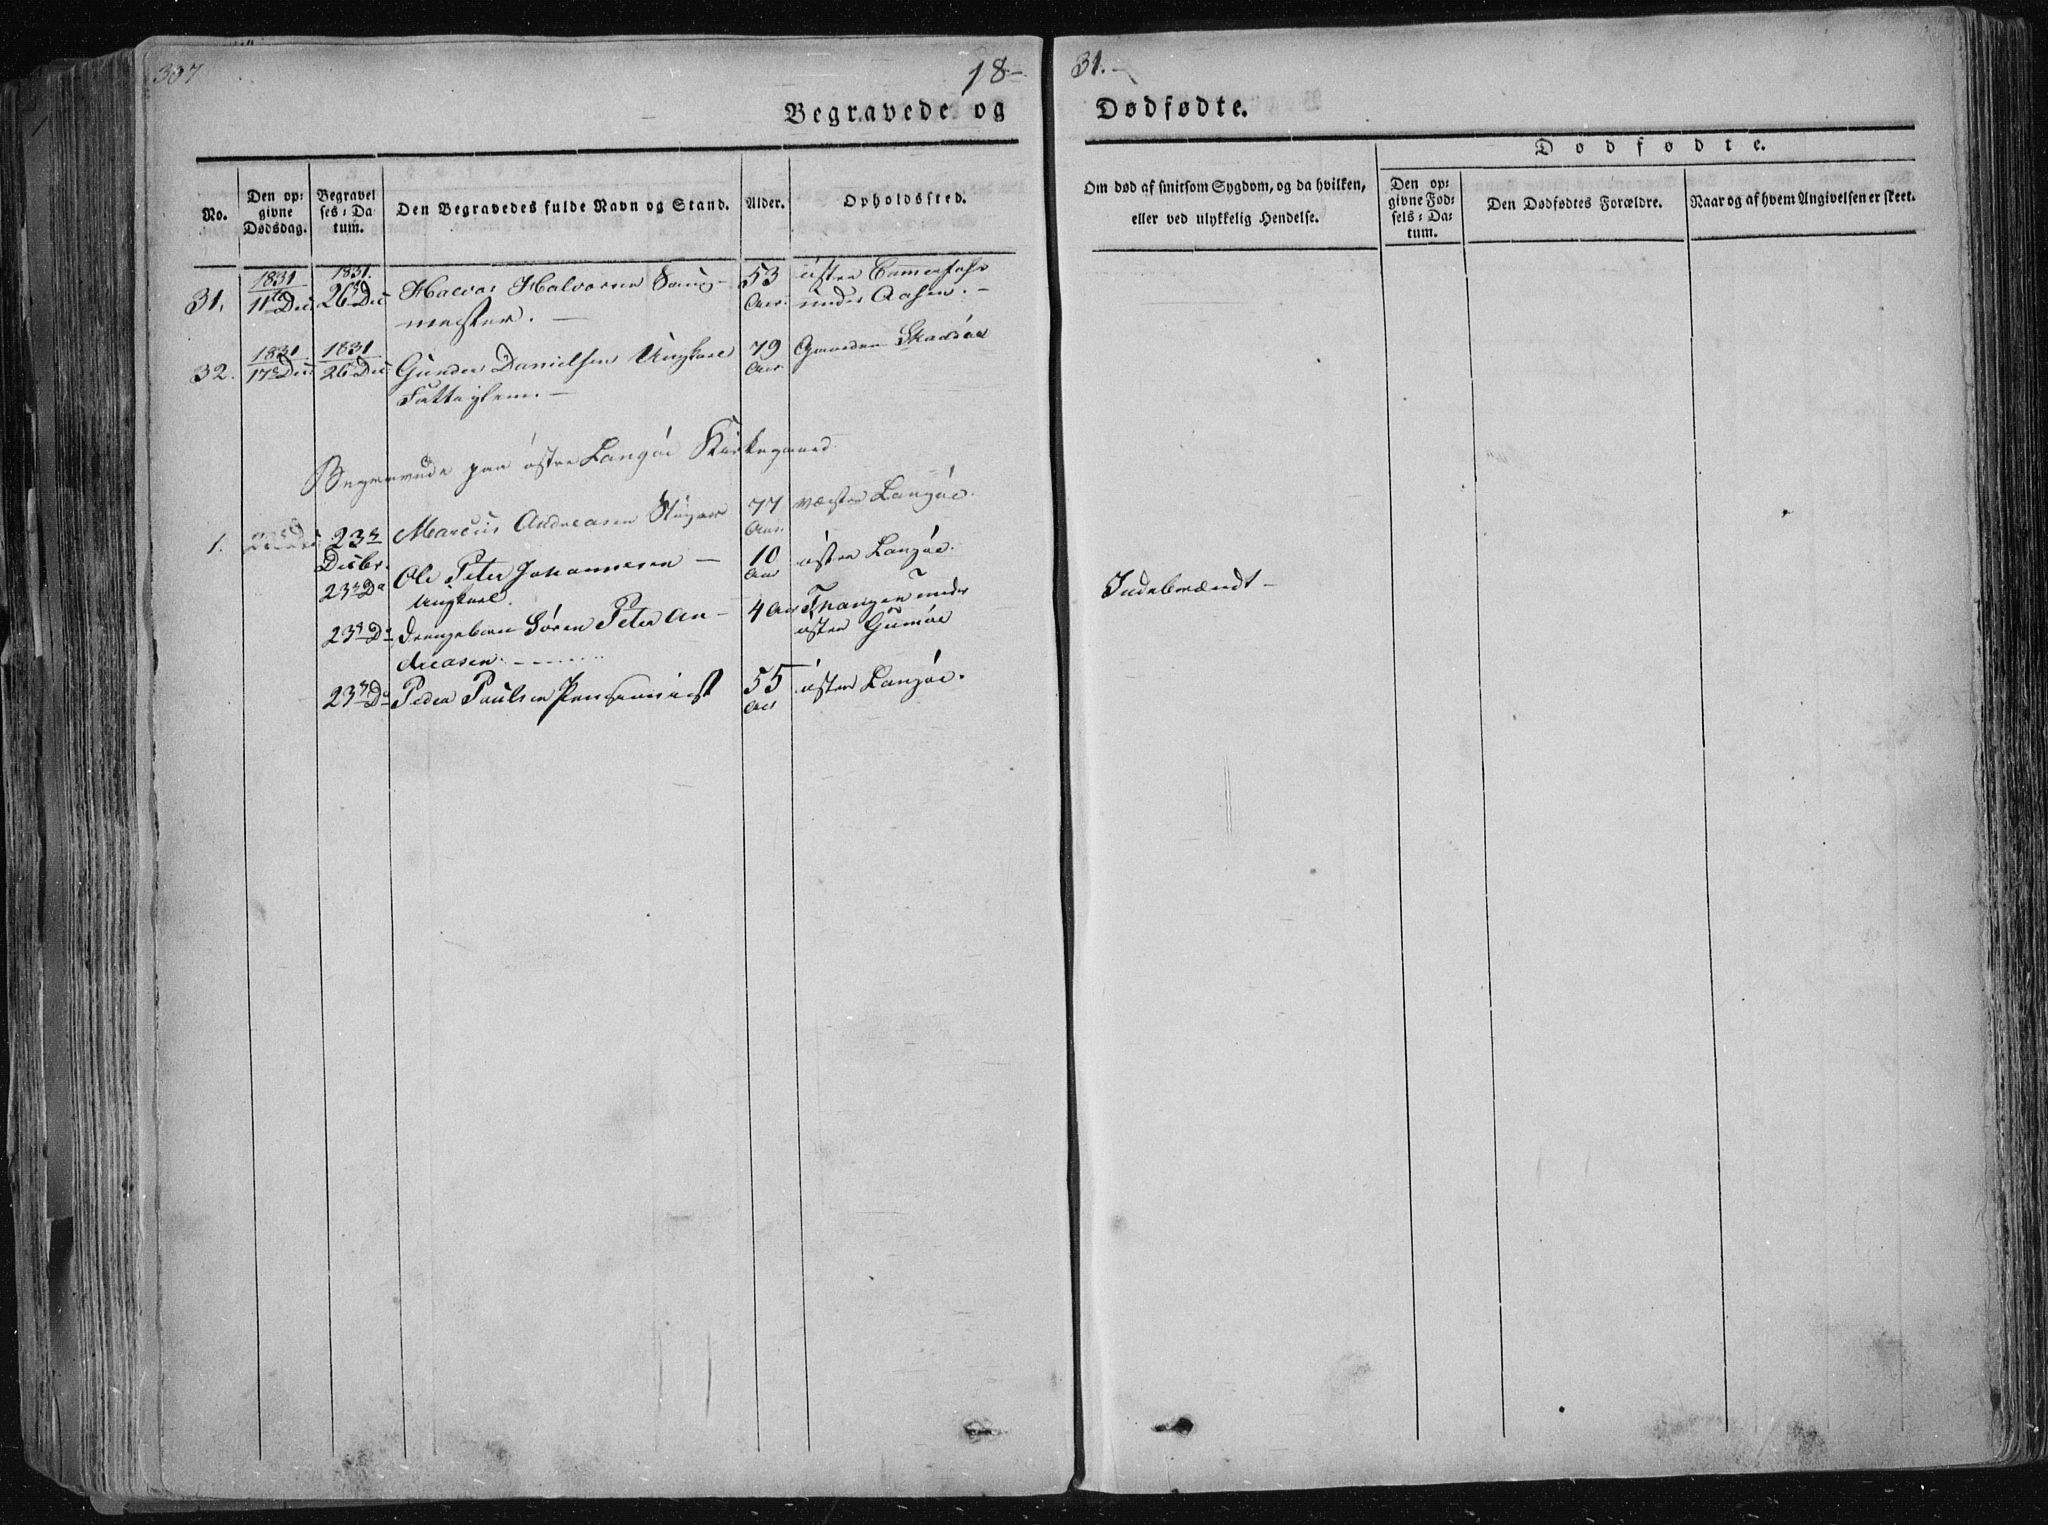 307
18-
31.
Begravede og
Dødfødte.
No.
Den op-
givne
Dødsdag.
Begravel
ses: Da-
tum.
Den Begravedes fulde Navn og Stand.
Alder.
Opholdssted.
Om død af smitsom Sygdom, og da hvilken,
eller ved ulykkelig Hendelse.
Dødfødte.
Den op-
givne Fød-
sels: Da-
tum.
Den Dødfødtes Forældre.
Naar og af hvem Angivelsen er skeet.
31.
1831
11te Dec
1831.
26 Dec
Halvor Halvorsen
mester. —
53
Aar.
østre
under Aasen. —
32.
1831
17 Dec
1831
26 Dec
Gunder Danielsen Ungkarl
Fattiglem. —
79
Aar
Gaarden
Begravede paa østre Langøe Kirkegaard.
1.
23
Decbr.
Marcus Andreasen
77
Aar
væstre Langøe.
23 Do
Ole Peter Johannesen —
Ungkarl.
10
Aar
østre Langøe.
Indebrændt —
23 Do
Drengebarn Sören Peter An-
dreasen.
4 Aar
Thangen under
østre Gumøe
23 Do
Peder Paulsen Pensionist
55
Aar
østre Langøe.